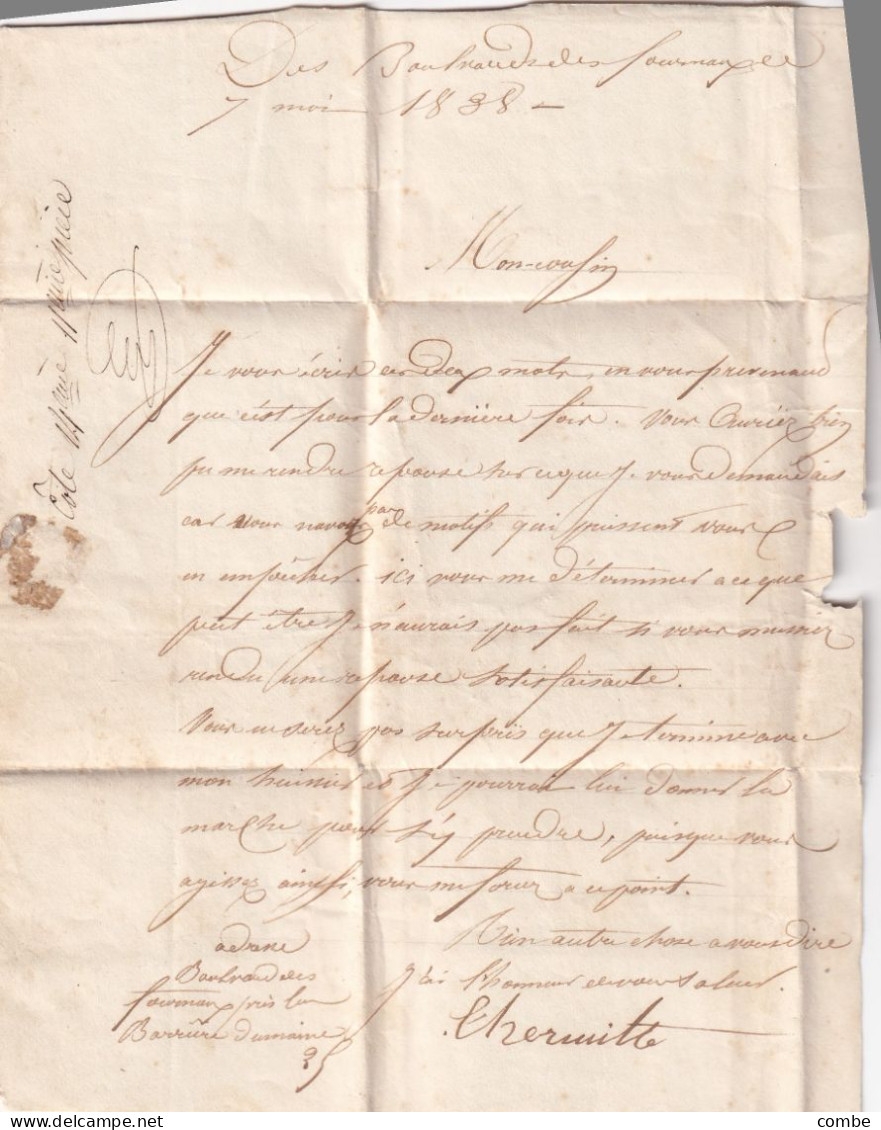 Des Boulvardes des fourneaux ce
7 mai 1838 –
Mon cousin
Je vous écris ces deux mots, en vous prevenand
que c'est pour la dernière fois. Vous auriez bien
pu me rendre reponse sur ce que Je vous demandais
car vous navez pas de motifs qui puissent vous
en empêcher. ici vous me déterminer a ce que
peut être Je n'aurais pas fait si vous meussiez
rendu une reponse satisfaisante.
Vous ne serez pas surpris que Je termine avec
mon huissier et Je pourrai lui donner la
marche pour s'y prendre, puisque vous
agissez ainssi, vous me forcez a ce point.
Rien autre chose a vous dire
J'ai l'honneur de vous saluer.
Lhermitte
adresse
Boulvard des
fourneaux près la
Barrière du maine
35
Côte 14eme 11eme pièce
combe